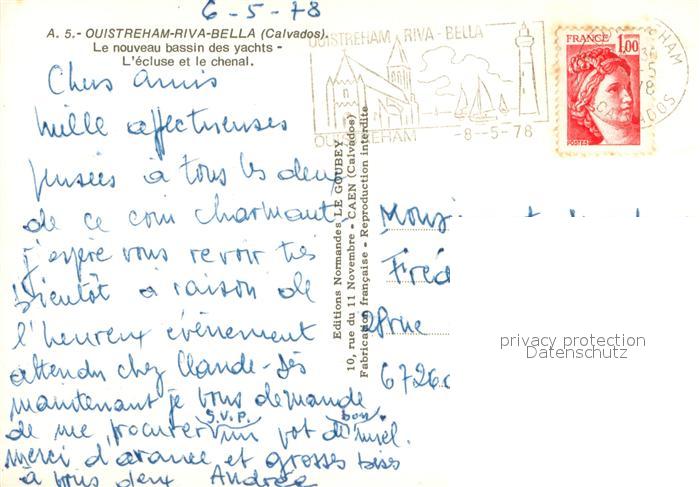 6-5-78
A. 5.- OUISTREHAM-RIVA-BELLA (Calvados).
Le nouveau bassin des yachts -
L'écluse et le chenal.
Chers amis
Mille affectueuses
pensées à tous les deux
de ce coin charmant
j'espère vous revoir très
bientôt à raison de
l'heureux événement
attendu chez Claude - Dès
maintenant je vous demande
S.V.P. bon
de me procurer un pot de miel.
Merci d'avance et grosses bises
à vous deux Andrée
OUISTREHAM RIVA-BELLA
OUISTREHAM
-8-5-78
FRANCE 1,00
POSTES
Editions Normandes LE GOUBEY
10, rue du 11 Novembre - CAEN (Calvados)
Fabrication française - Reproduction interdite
Fréd
28 rue
6726
privacy protection
Datenschutz